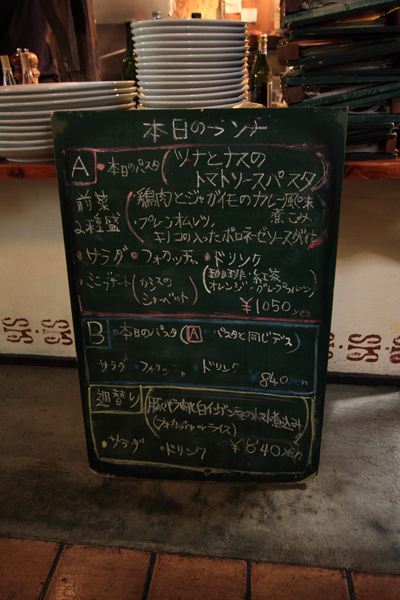 本日のランチ
A ・本日のパスタ (ツナとナスの
トマトソースパスタ)
前菜 ・鶏肉とジャガイモのカレー風味
2種盛 煮こみ
・プレーンオムレツ
キノコの入ったボロネーゼソースがけ
・サラダ ・フォカッチャ ・ドリンク
(珈琲・紅茶
オレンジ・グレープフルーツ)
・ミニデザート (カシスの
シャーベット)
¥1050yen
B ・本日のパスタ (A パスタと同じデス)
・サラダ ・フォカッチャ ・ドリンク
¥840yen
週替り (豚バラ肉と白インゲン豆のトマト煮込み)
(フォカッチャorライス)
・サラダ ・ドリンク ¥640yen